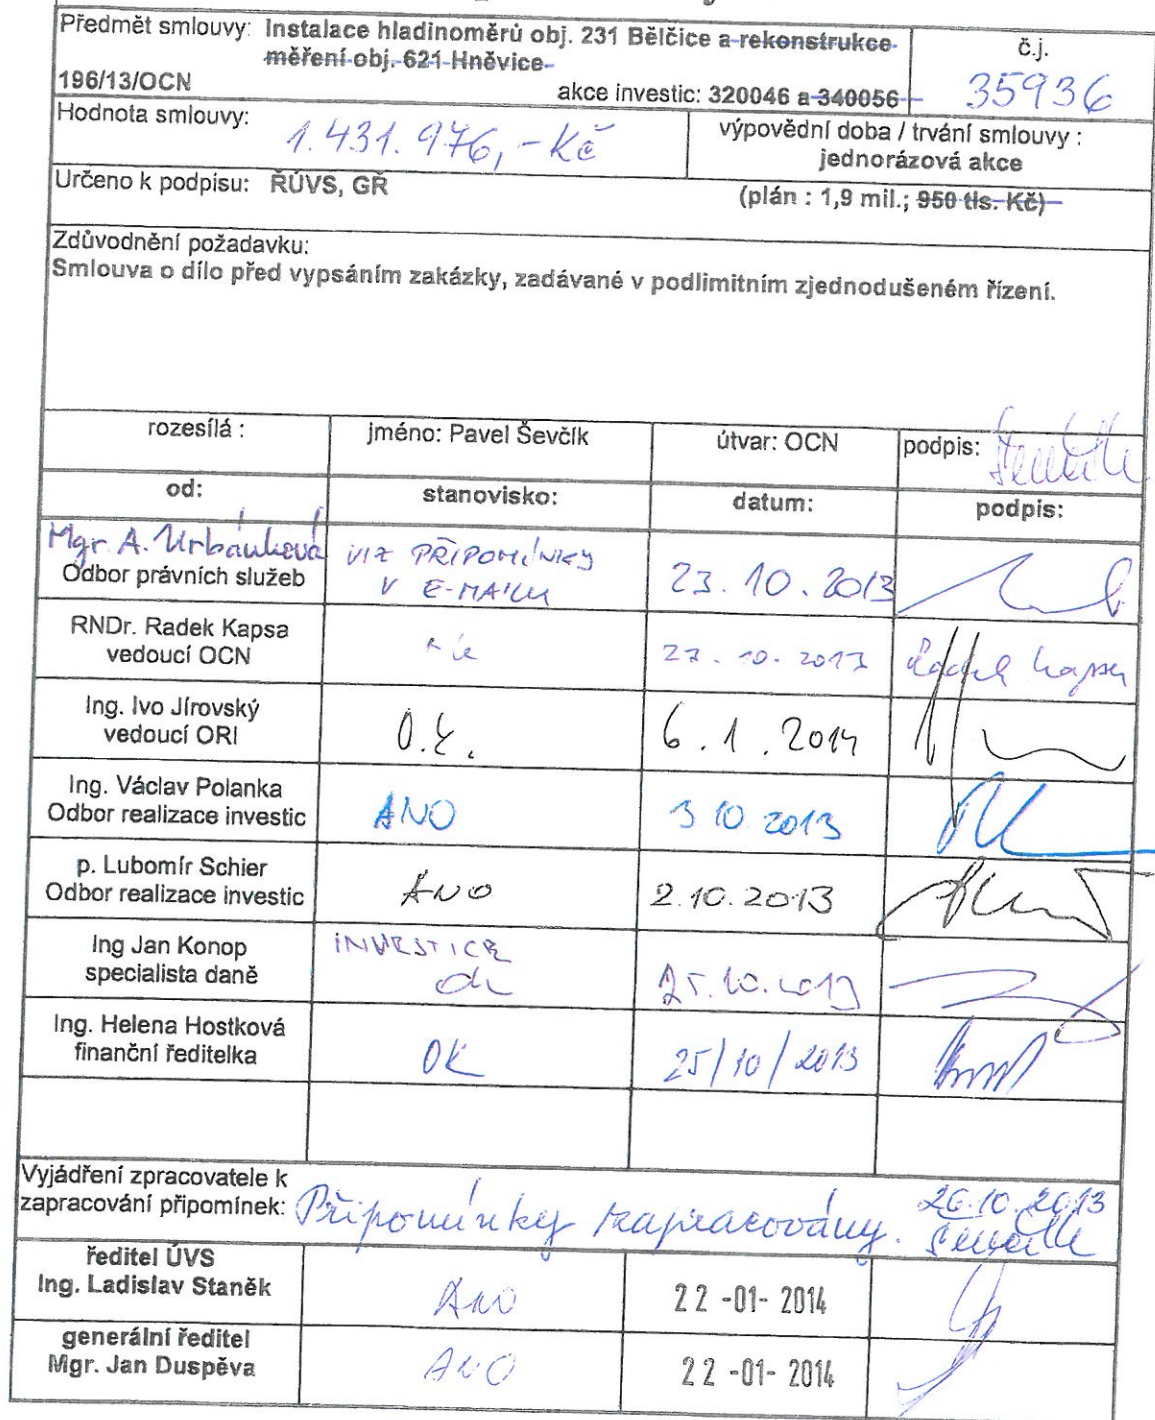 Předmět smlouvy: Instalace hladinoměrů obj. 231 Bělčice a rekonstrukce
měření obj. 621 Hněvice
č.j.
35936
196/13/OCN
akce investic: 320046 a 340056
Hodnota smlouvy:
1.431.976,-Kč
výpovědní doba / trvání smlouvy :
jednorázová akce
Určeno k podpisu: ŘÚVS, GŘ
(plán : 1,9 mil.; 950 tis. Kč)
Zdůvodnění požadavku:
Smlouva o dílo před vypsáním zakázky, zadávané v podlimitním zjednodušeném řízení.
rozesílá :
jméno: Pavel Ševčík
útvar: OCN
podpis:
od:
stanovisko:
datum:
podpis:
Mgr. A. Urbánková
Odbor právních služeb
VIZ PŘIPOMÍNKY
V E-MAILU
23.10.2013
RNDr. Radek Kapsa
vedoucí OCN
23.10.2013
Radek Kapsa
Ing. Ivo Jírovský
vedoucí ORI
O.K.
6.1.2014
Ing. Václav Polanka
Odbor realizace investic
ANO
3 10 2013
p. Lubomír Schier
Odbor realizace investic
ANO
2.10.2013
Ing Jan Konop
specialista daně
INVESTICE
25.10.2013
Ing. Helena Hostková
finanční ředitelka
OK
25/10/2013
Vyjádření zpracovatele k
zapracování připomínek:
Připomínky zapracovány.
26.10.2013
ředitel ÚVS
Ing. Ladislav Staněk
ANO
22 -01- 2014
generální ředitel
Mgr. Jan Duspěva
ANO
22 -01- 2014